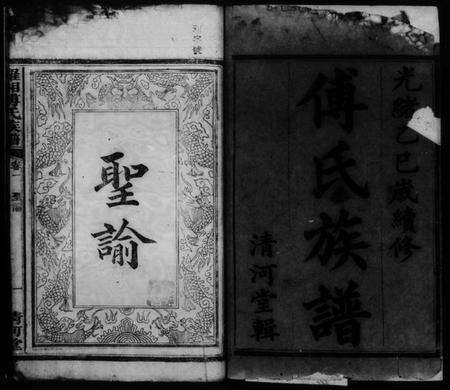 光緒乙巳歲續修
傅氏族譜
清河堂輯
聖諭